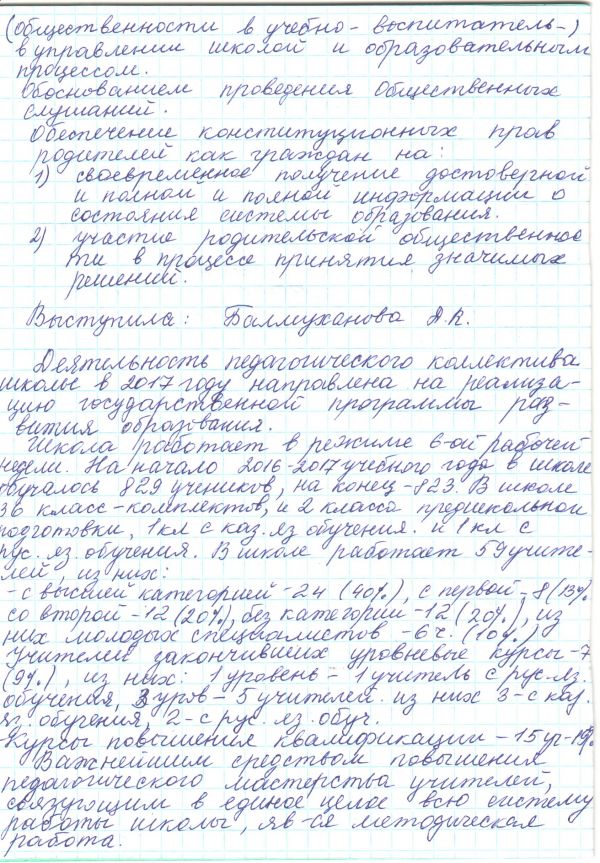 (общественности в учебно-воспитатель-)
в управлении школой и образовательным
процессом.
Обоснованием проведения Общественных
слушаний.
Обеспечение конституционных прав
родителей как граждан на:
1) своевременное получение достоверной
и полной и полной информации о
состояния системы образования.
2) участие родительской общественнос
ти в процессе принятия значимых
решений.
Выступила: Балмуханова А.К.
Деятельность педагогического коллектива
школы в 2017 году направлена на реализа-
цию государственной программы раз-
вития образования.
Школа работает в режиме 6-ой рабочей
недели. На начало 2016-2017 учебного года в школе
обучалось 829 учеников, на конец - 823. В школе
36 класс-комплектов, и 2 класса предшкольной
подготовки, 1 кл с каз. яз обучения. и 1 кл с
рус. яз. обучения. В школе работает 59 учите-
лей, из них:
- с высшей категорией - 24 (40%), с первой - 8 (13%)
со второй - 12 (20%), без категории - 12 (20%), из
них молодых специалистов - 6 ч. (10%)
Учителей закончивших уровневые курсы - 7
(9%), из них: 1 уровень - 1 учитель с рус. яз.
обучения, 3 уров - 5 учителей. из них 3 - с каз.
яз. обучения, 2 - с рус. яз. обуч.
- Курсы повышения квалификации - 15 уч -
Важнейшим средством повышения
педагогического мастерства учителей,
связующим в единое целое всю систему
работы школы, яв-ся методическая
работа.